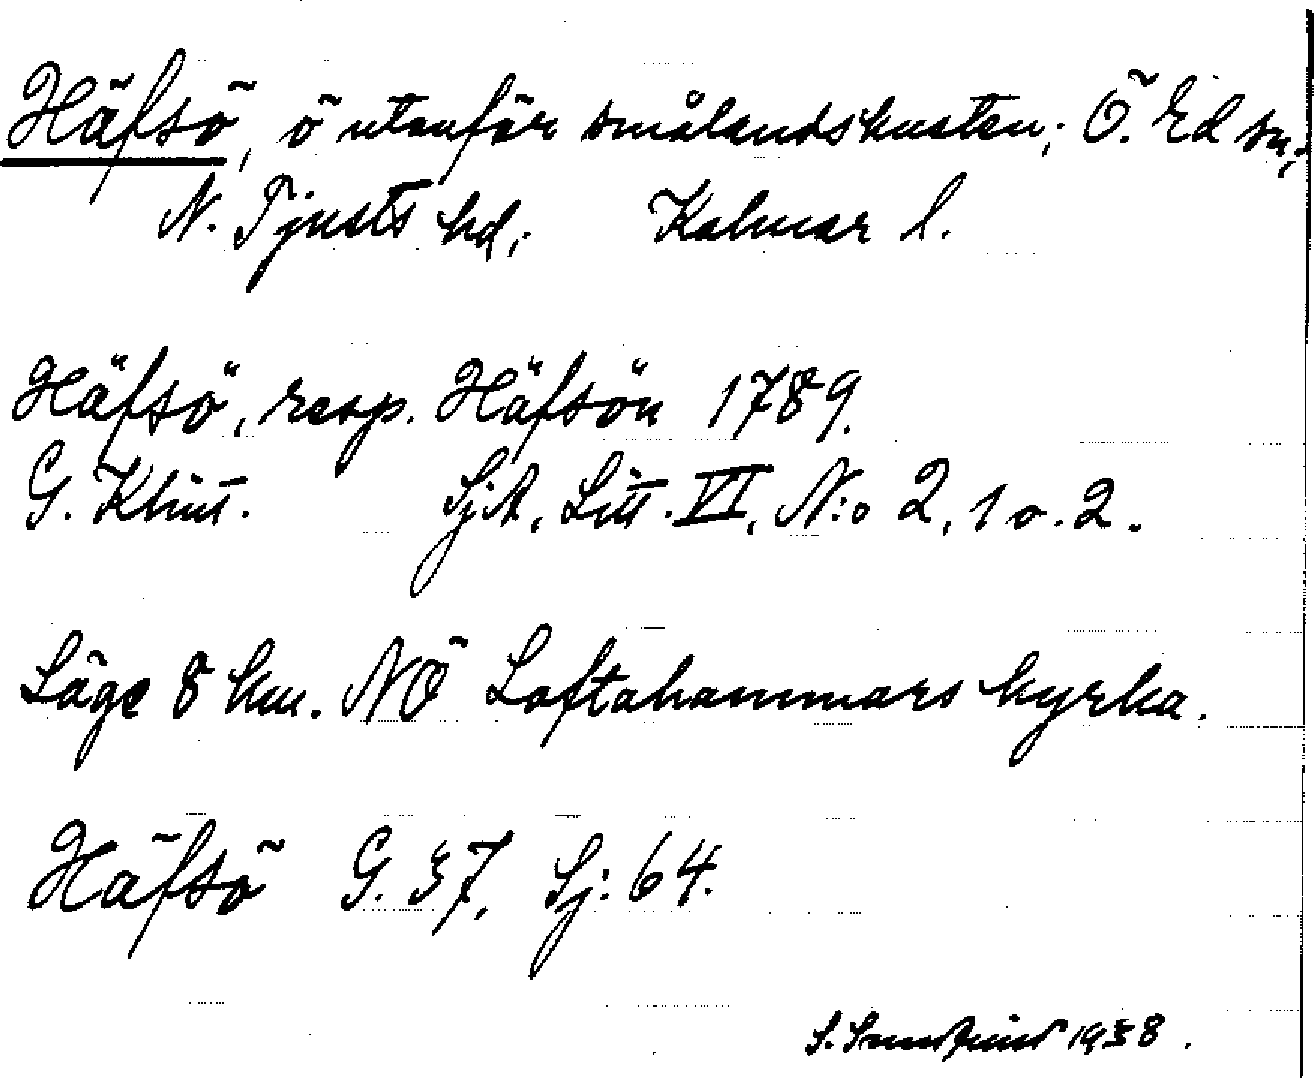 Häfsö, ö utanför smålandskusten; Ö. Ed sn,
N. Tjusts hd; Kalmar l.
Häfsö, resp. Häfsön 1789.
G. Klint. SjA, Litt. VI, N:o 2, 1 o. 2.
Läge 8 km. NÖ Loftahammars kyrka.
Häfsö G. 37, Sj: 64.
S. 1938.